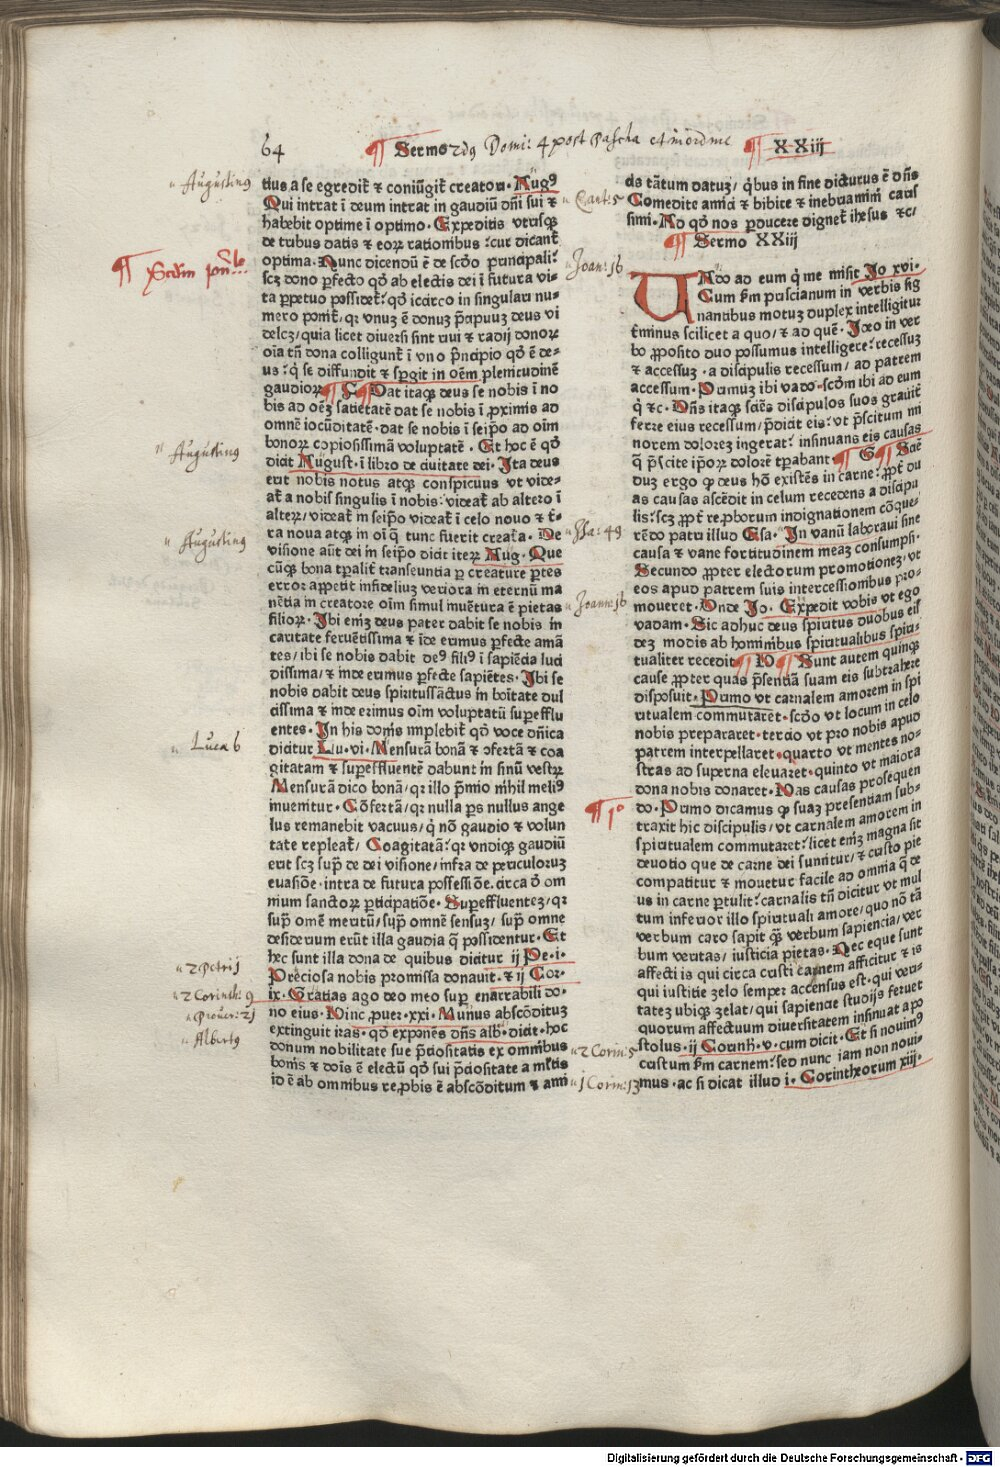 64 Sermo 2dus Domi: 4 post Pascha et in ordine XXiij
Augustinus
Secundum principale
Augustinus
Augustinus
Luca 6
2 Petri j
2 Corinth: 9
Prouer: 21
Albertus
tius a se egredit᷑ ⁊ coniūgit᷑ creatori. Augꝰ
Qui intrat ī deum intrat in gaudiū dn̄i sui ⁊
habebit optime ī optimo. Expeditis vtrisqꝫ
de tribus datis ⁊ eorꝝ rationibus cur dicant᷑
optima. Nunc dicendū ē de scd̄o principali?
scꝫ dono ꝑfecto qd̄ ab electis dei ī futura vi⸗
ta ꝑpetuo possidet᷑? qd̄ icirco in singulari nu⸗
mero ponit᷑, qꝛ vnuꝫ ē donuꝫ p̄cipuuꝫ deus vi
delꝫ, quia licet diuersi sint riui ⁊ radij donorꝝ
oīa tn̄ dona colligunt᷑ ī vno p̄ncipio qd̄ ē de⸗
us? q̇ se diffundit ⁊ sꝑgit in oēm plenitudinē
gaudiorꝝ ¶ C ¶ Dat itaqꝫ deus se nobis ī no
bis ad oēꝫ satietatē dat se nobis ī ꝓximis ad
omnē iocūditatē. dat se nobis ī seip̄o ad oim
bonorꝝ copiosissimā voluptatē. Et hoc ē qd̄
dicit August. ī libro de ciuitate dei. Ita deus
erit nobis notus atqꝫ conspicuus vt vide⸗
at᷑ a nobis singulis ī nobis. videat᷑ ab altero ī
altero, videat᷑ in seip̄o videat᷑ ī celo nouo ⁊ t᷑⸗
ra noua atqꝫ in oī q̄ tunc fuerit creat᷑a. De
visione aūt dei in seip̄o dicit iteꝝ Aug. Que
cūqꝫ bona tꝑalit᷑ transeuntia ꝑ creature ꝑtes
error appetit infideliuꝫ veriora in eternū ma
nētia in creatore oīm simul inuētura ē pietas
filiorꝝ. Ibi eniꝫ deus pater dabit se nobis in
caritate feruētissima ⁊ īde erimus ꝑfecte amā
tes, ibi se nobis dabit deꝰ filiꝰ ī sapiēcia luci
dissima, ⁊ inde erimus ꝑfecte sapiētes. Ibi se
nobis dabit deus spiritussāctus in boītate dul
cissima ⁊ inde erimus oīm voluptatū superfflu
entes. In his donis implebit᷑ qd̄ voce dn̄ica
dicitur Lu. vi. Mensurā bonā ⁊ ꝯfertā ⁊ coa
gitatam ⁊ superffluentē dabunt in sinū vestrꝝ
Mensurā dico bonā, qꝛ illo p̄mio nihil meliꝰ
inuenitur. Cōfertā, qꝛ nulla ꝑs nullus ange
lus remanebit vacuus, q̇ nō gaudio ⁊ volun
tate repleat᷑, Coagitatā. qꝛ vndiqꝫ gaudiū
erit scꝫ sup̄ de dei visione, infra de periculoruꝫ
euasiōe. intra de futura possessiōe. circa d̄ om
nium sanctorꝝ ꝑticipatiōe. Superffluentez, qꝛ
sup̄ omē meritū, sup̄ omnē sensuꝫ, sup̄ omne
desiderium erūt illa gaudia q̄ possidentur. Et
hec sunt illa dona de quibus dicitur ij Pe. i.
Preciosa nobis promissa donauit. ⁊ ij Cor⸗
ix. Gratias ago deo meo sup̄ enarrabili do⸗
no eius. Hinc ꝓuer. xxi. Munus abscōdituꝫ
extinguit iras. qd̄ exponēs dn̄s alb. dicit. hoc
donum nobilitate sue p̄ciositatis ex omnibus
bonis ⁊ dōis ē electū qd̄ sui p̄ciositate a mltis
id ē ab omnibus reꝓbis ē abscōditum ⁊ ami
Cant: 5
Joan: 16
Isa: 49
Joann: 16
¶ 1º
2 Corin: 5
1 Corin: 13
cis tātum datuꝫ, q̇bus in fine dicturus ē dn̄s
Comedite amici ⁊ bibite ⁊ inebriamini caris
simi. Ad qd̄ nos ꝑducere dignet᷑ ihesus ⁊c,
¶ Sermo XXiij
VAdo ad eum q̇ me misit Jo xvi.
Cum ẜm priscianum in verbis sig
nantibus motuꝫ duplex intelligitur
t᷑minus scilicet a quo, ⁊ ad quē. Ideo in ver
bo ꝓposito duo possumus intelligere? recessuꝫ
⁊ accessuꝫ. a discipulis recessum, ad patrem
accessum. Primuꝫ ibi vado. scd̄m ibi ad eum
q̇ ⁊c. Dn̄s itaqꝫ sciēs discipulos suos grauit᷑
ferre eius recessum, p̄dicit eis. vt p̄scitum mi
norem doloreꝫ ingerat? insinuans eis causas
q̄ p̄scite ip̄orꝝ dolorē tꝑabant ¶ G ¶ Sciē
duꝫ ergo qꝙ deus hō existēs in carne? ꝓpt᷑ du
as causas ascēdit in celum recedens a discipu
lis? scꝫ ꝓpt᷑ reꝓborum indignationem cōque⸗
rēdo patri illud Esa. In vanū laboraui sine
causa ⁊ vane fortitudinem meaꝫ consumpsi.
Secundo ꝓpter electorum promotioneꝫ, vt
eos apud patrem suis intercessionibus pro⸗
moueret. Onde Jo. Expedit vobis vt ego
vadam. Sic adhuc deus spiritus duobus eis
deꝫ modis ab hominibus spiritualibus spiri⸗
tualiter recedit ¶ D ¶ Sunt autem quinqꝫ
cause ꝓpter quas p̄sentiā suam eis subtrahere
disposuit. Primo vt carnalem amorem in spi
ritualem commutaret. scd̄o vt locum in celo
nobis prepararet. tercio vt pro nobis apud
patrem interpellaret. quarto vt mentes no⸗
stras ad superna eleuaret. quinto vt maiora
dona nobis donaret. Has causas prosequen
do. Primo dicamus qꝙ suaꝫ presentiam sub⸗
traxit hic discipulis, vt carnalem amorem in
spiritualem commutaret? licet eniꝫ magna sit
deuotio que de carne dei sumitur, ⁊ cristo pie
compatitur ⁊ mouetur facile ad omnia q̄ de
us in carne ꝑtulit? carnalis tn̄ dicitur vt mul
tum inferior illo spirituali amore, quo nō tā
verbum caro sapit qꝫ̄ verbum sapiencia, ver
bum veritas, iusticia pietas. Nec eque sunt
affecti is qui circa cristi carnem afficitur ⁊ is
qui iustitie zelo semper accensus est. qui veri⸗
tateꝫ vbiqꝫ ꝫelat, qui sapiencie studijs feruet
quorum affectuum diuersitatem insinuat apo
stolus. ij Corinth. v. cum dicit. Et si nouimꝰ
cristum ẜm carnem? sed nunc iam non noui⸗
mus. ac si dicat illud i. Corintheorum xiij.
Digitalisierung gefördert durch die Deutsche Forschungsgemeinschaft - DFG